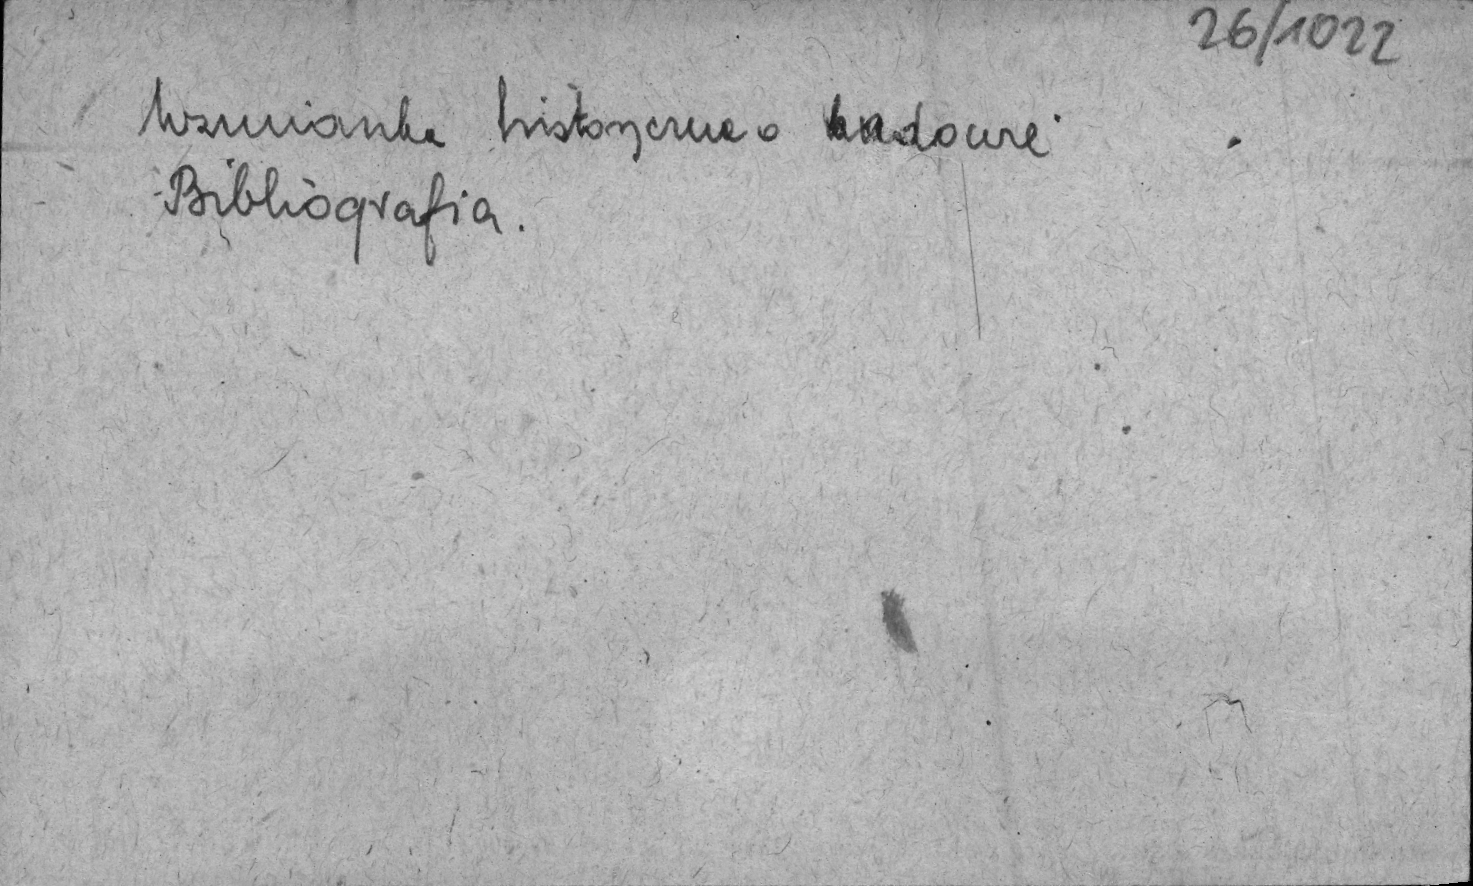 26/1022
Wzmianka historyczna o
Bibliografia.